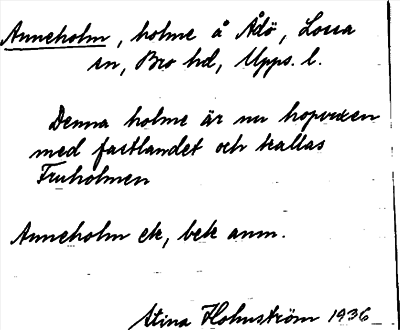 Anneholm, holme å Ådö, Lossa
sn, Bro hd, Upps. l.
Denna holme är nu hopvuxen
med fastlandet och kallas
Fruholmen
Anneholm ek, bek anm.
Stina Holmström 1936